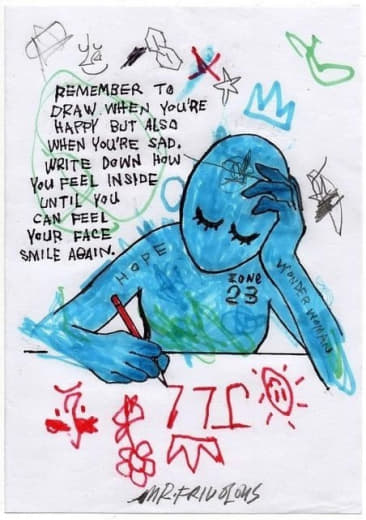 REMEMBER TO
DRAW WHEN YOU'RE
HAPPY BUT ALSO
WHEN YOU'RE SAD.
WRITE DOWN HOW
YOU FEEL INSIDE
UNTIL YOU
CAN FEEL
YOUR FACE
SMILE AGAIN.
HOPE
ZONE
23
WONDER WOMAN
MR.FRIVOLOUS